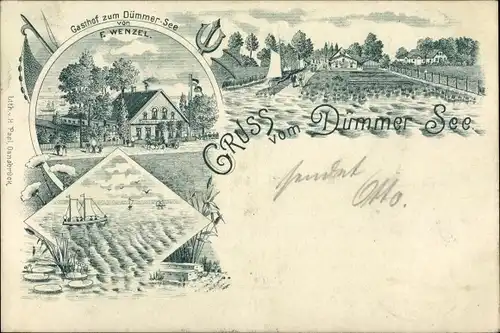 Gasthof zum Dümmer-See
von
F. WENZEL.
GRUSS vom Dümmer See.
sendet
Otto.
Lith. v. H. Papl, Osnabrück.